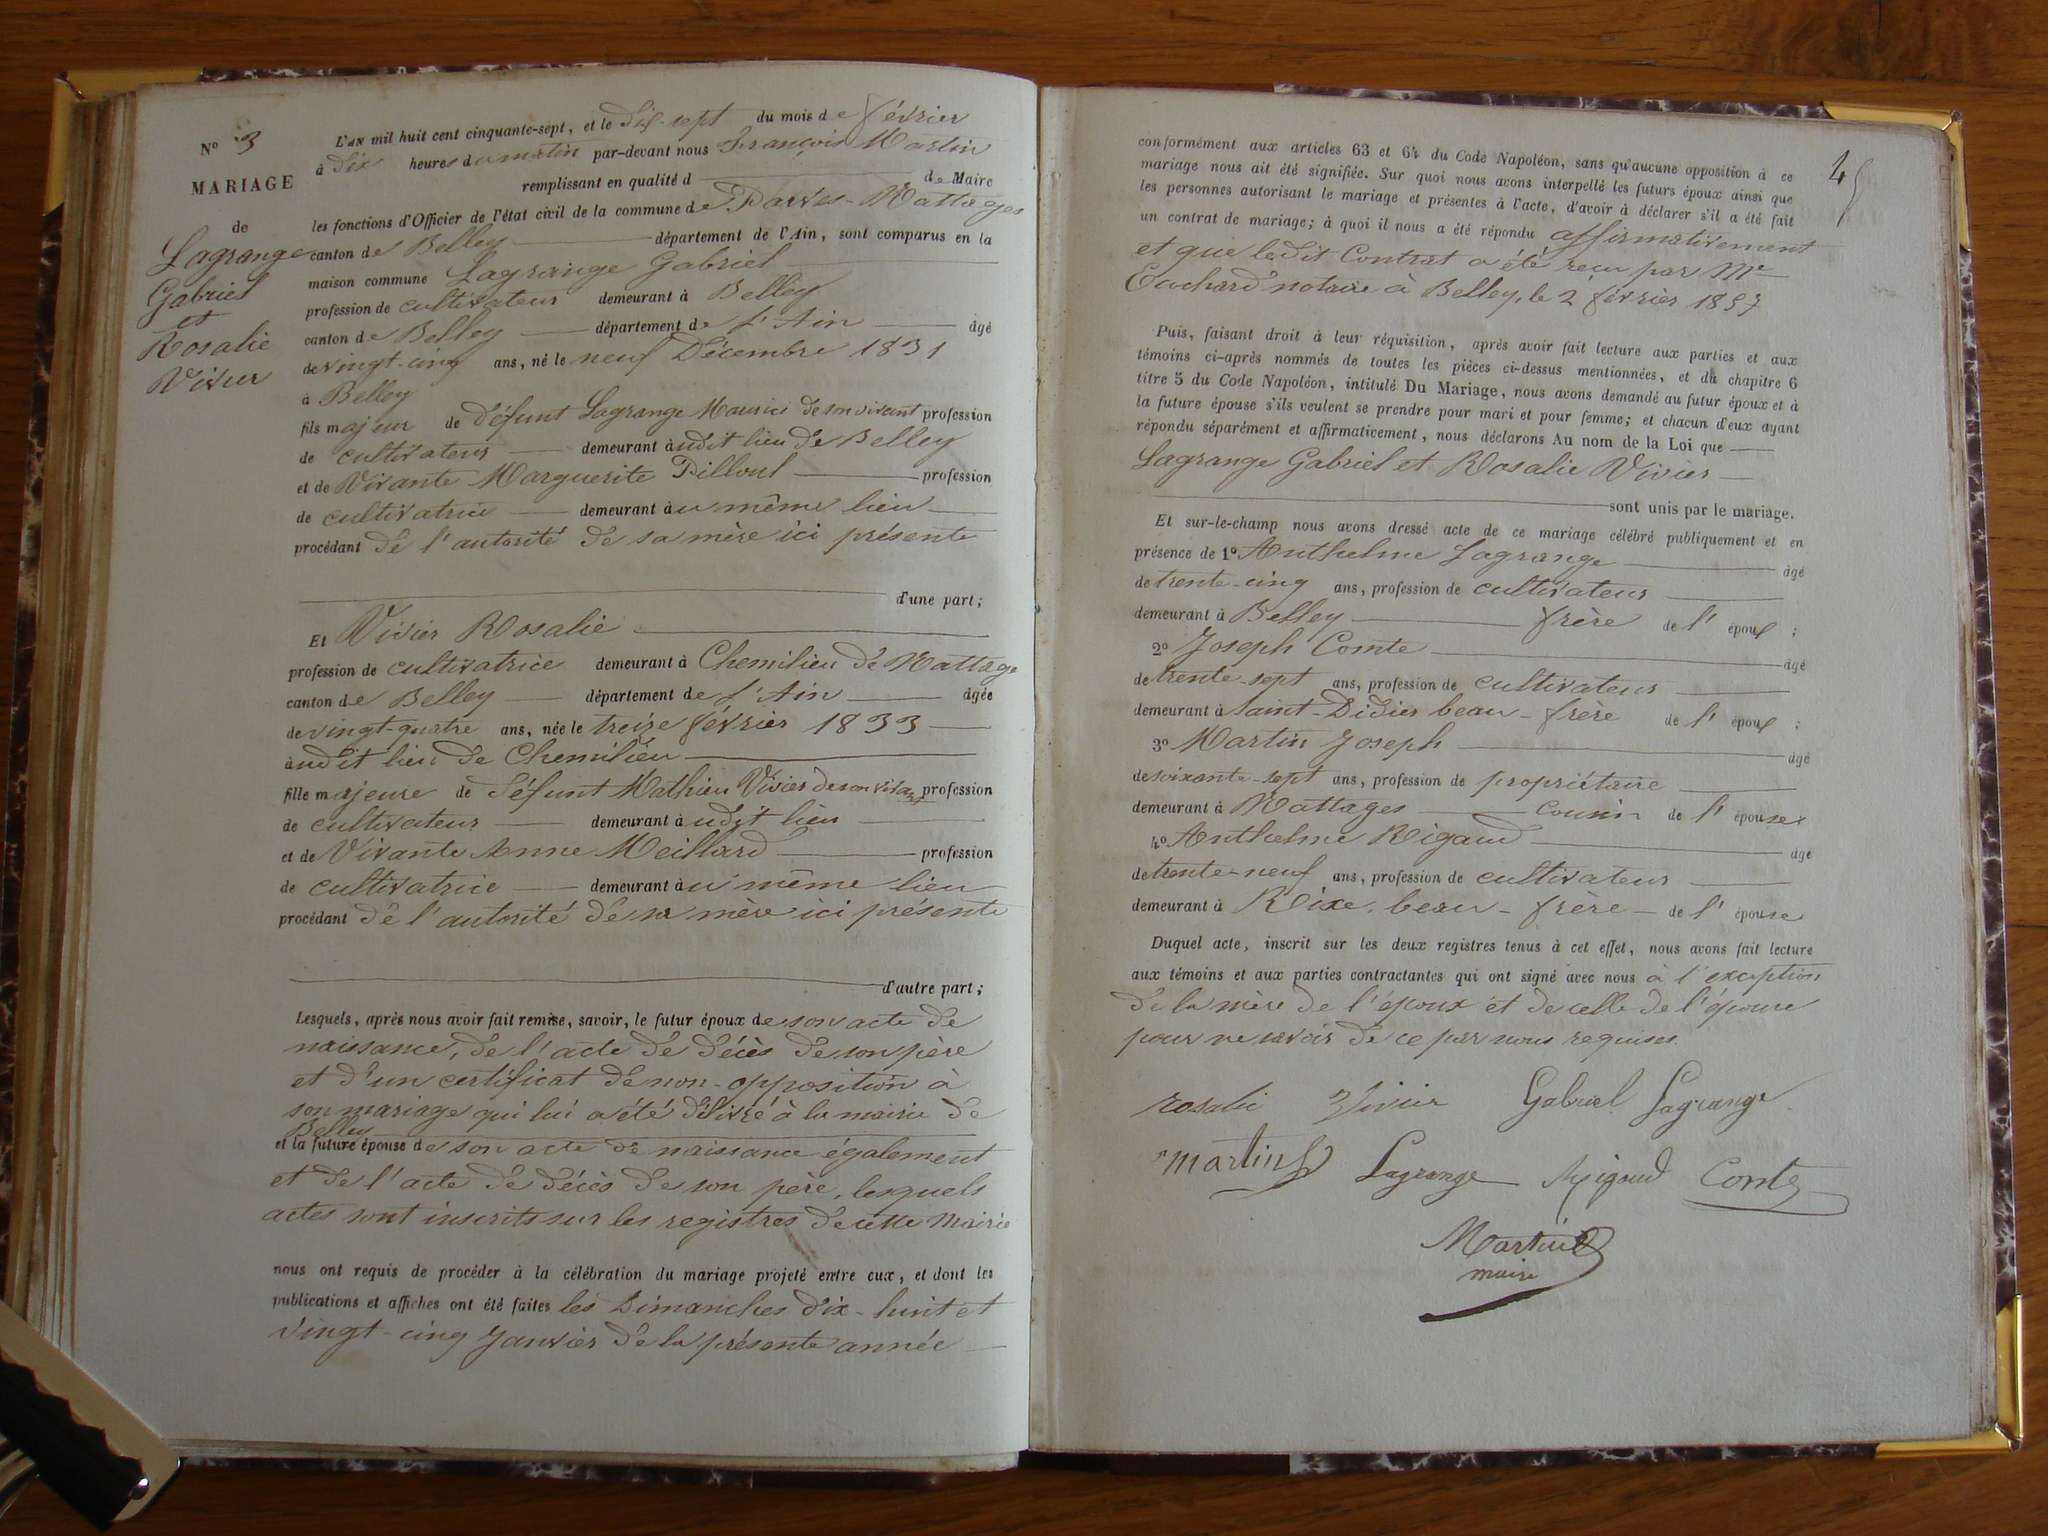 N° 3
MARIAGE
de
Lagrange
Gabriel
et
Rosalie
Vivier
L'AN mil huit cent cinquante-sept, et le dix-sept du mois de février
à dix heures du matin par-devant nous François Martin
remplissant en qualité d de Maire
les fonctions d'Officier de l'état civil de la commune de Parves-Nattages
canton de Belley département de l'Ain, sont comparus en la
maison commune Lagrange Gabriel
profession de cultivateur demeurant à Belley
canton de Belley département de l'Ain âgé
de vingt-cinq ans, né le neuf Décembre 1831
à Belley
fils majeur de défunt Lagrange Maurice de son vivant profession
de cultivateur demeurant audit lieu de Belley
et de Vivante Marguerite Pilloud profession
de cultivatrice demeurant au même lieu
procédant de l'autorité de sa mère ici présente
d'une part;
Et Vivier Rosalie
profession de cultivatrice demeurant à Chemilieu de Nattage
canton de Belley département de l'Ain âgée
de vingt-quatre ans, née le treize février 1833
audit lieu de Chemilieu
fille majeure de défunt Mathieu Vivier de son vivant profession
de cultivateur demeurant audit lieu
et de Vivante Anne Meillard profession
de cultivatrice demeurant au même lieu
procédant de l'autorité de sa mère ici présente
d'autre part;
Lesquels, après nous avoir fait remise, savoir, le futur époux de son acte de
naissance, de l'acte de décès de son père
et d'un certificat de non-opposition à
son mariage qui lui a été délivré à la mairie de
Belley
et la future épouse de son acte de naissance également
et de l'acte de décès de son père, lesquels
actes sont inscrits sur les registres de cette Mairie
nous ont requis de procéder à la célébration du mariage projeté entre eux, et dont les
publications et affiches ont été faites les Dimanches dix-huit et
vingt-cinq Janvier de la présente année
45
conformément aux articles 63 et 64 du Code Napoléon, sans qu'aucune opposition à ce
mariage nous ait été signifiée. Sur quoi nous avons interpellé les futurs époux ainsi que
les personnes autorisant le mariage et présentes à l'acte, d'avoir à déclarer s'il a été fait
un contrat de mariage; à quoi il nous a été répondu affirmativement
et que ledit Contrat a été reçu par Me
notaire à Belley, le 2 février 1857
Puis, faisant droit à leur réquisition, après avoir fait lecture aux parties et aux
témoins ci-après nommés de toutes les pièces ci-dessus mentionnées, et du chapitre 6
titre 5 du Code Napoléon, intitulé Du Mariage, nous avons demandé au futur époux et à
la future épouse s'ils veulent se prendre pour mari et pour femme; et chacun d'eux ayant
répondu séparément et affirmativement, nous déclarons Au nom de la Loi que
Lagrange Gabriel et Rosalie Vivier
sont unis par le mariage.
Et sur-le-champ nous avons dressé acte de ce mariage célébré publiquement et en
présence de 1° Anthelme Lagrange âgé
de trente-cinq ans, profession de cultivateur
demeurant à Belley frère de l'époux;
2° Joseph Comte âgé
de trente-sept ans, profession de cultivateur
demeurant à Saint-Didier beau-frère de l'époux;
3° Martin Joseph âgé
de soixante-sept ans, profession de propriétaire
demeurant à Nattages cousin de l'épouse
4° Anthelme Rigaud âgé
de trente-neuf ans, profession de cultivateur
demeurant à Rixe, beau-frère de l'épouse
Duquel acte, inscrit sur les deux registres tenus à cet effet, nous avons fait lecture
aux témoins et aux parties contractantes qui ont signé avec nous à l'exception
de la mère de l'époux et de celle de l'épouse
pour ne savoir de ce par nous requises.
rosalie Vivier Gabriel Lagrange
martin Lagrange Rigaud Comte
Martin
maire